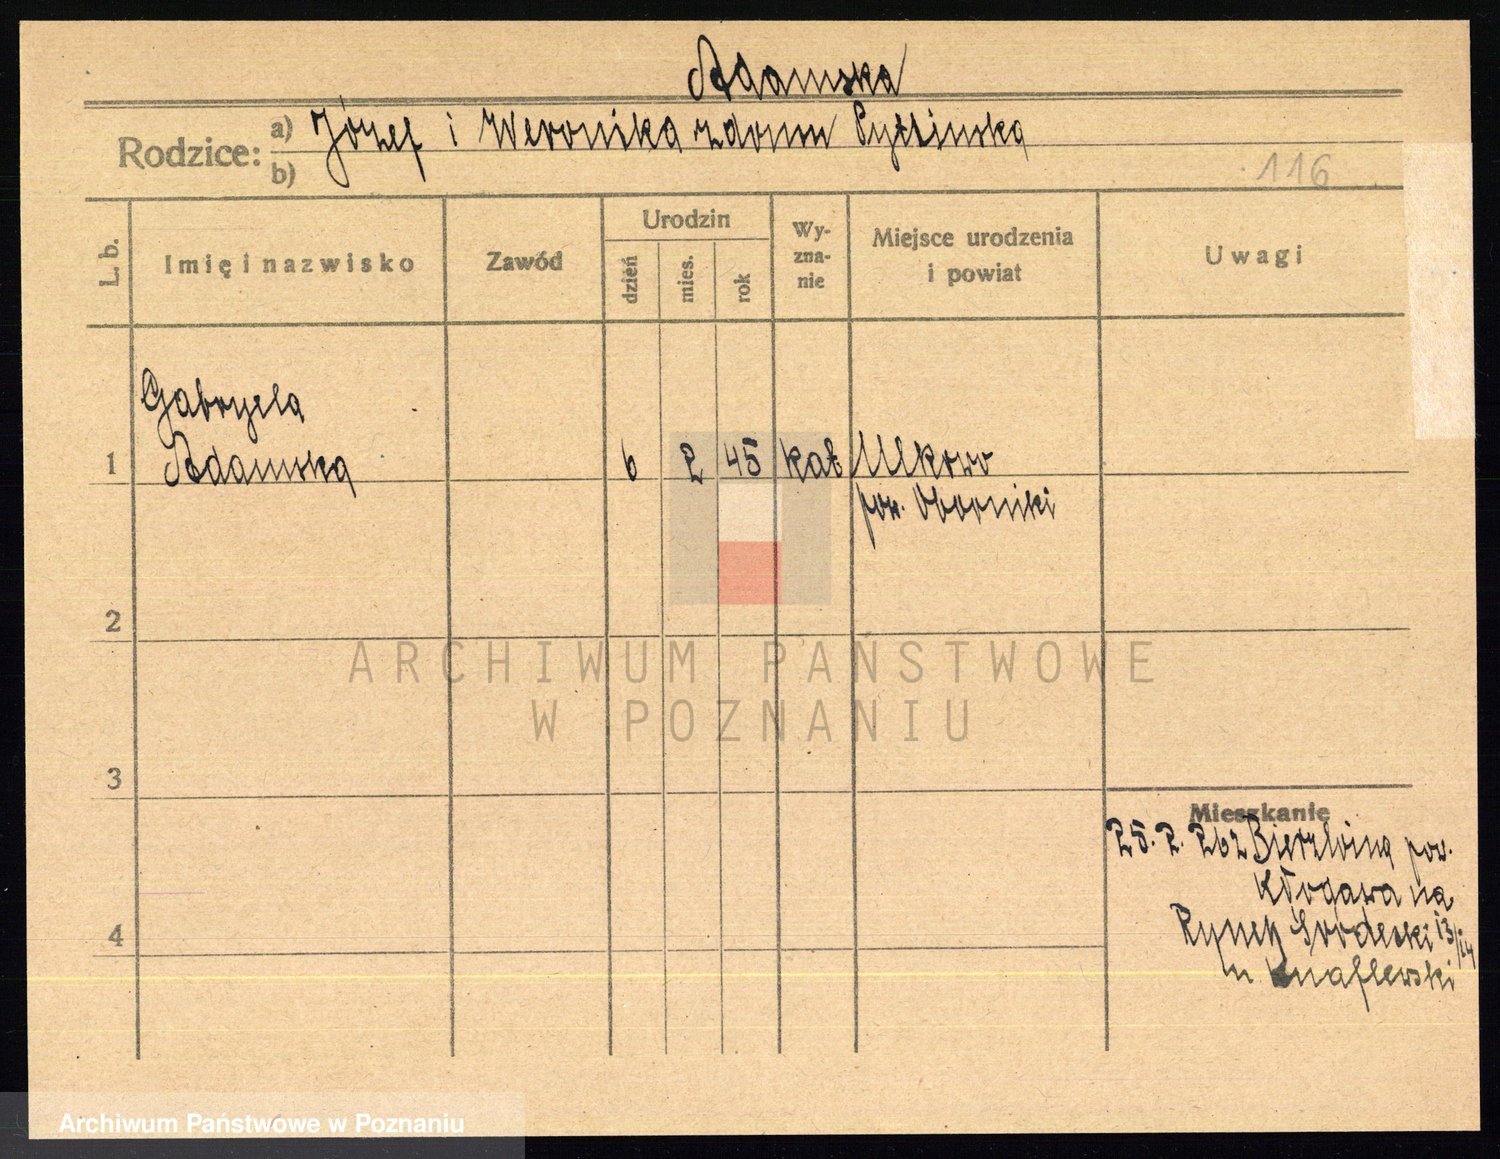 Adamska
Rodzice: a) Józef i Weronika z domu
b)
116
L. b.
Imię i nazwisko
Zawód
Urodzin
dzień
mies.
rok
Wy-
zna-
nie
Miejsce urodzenia
i powiat
Uwagi
Gabryela
1 Adamska 6 2 45 kat
pow. Oborniki
2
ARCHIWUM PAŃSTWOWE
W POZNANIU
3
Mieszkanie
25. 2. pow.
Kłodawa na
Rynek Śródecki 13/14
Knaflewski
4
Archiwum Państwowe w Poznaniu